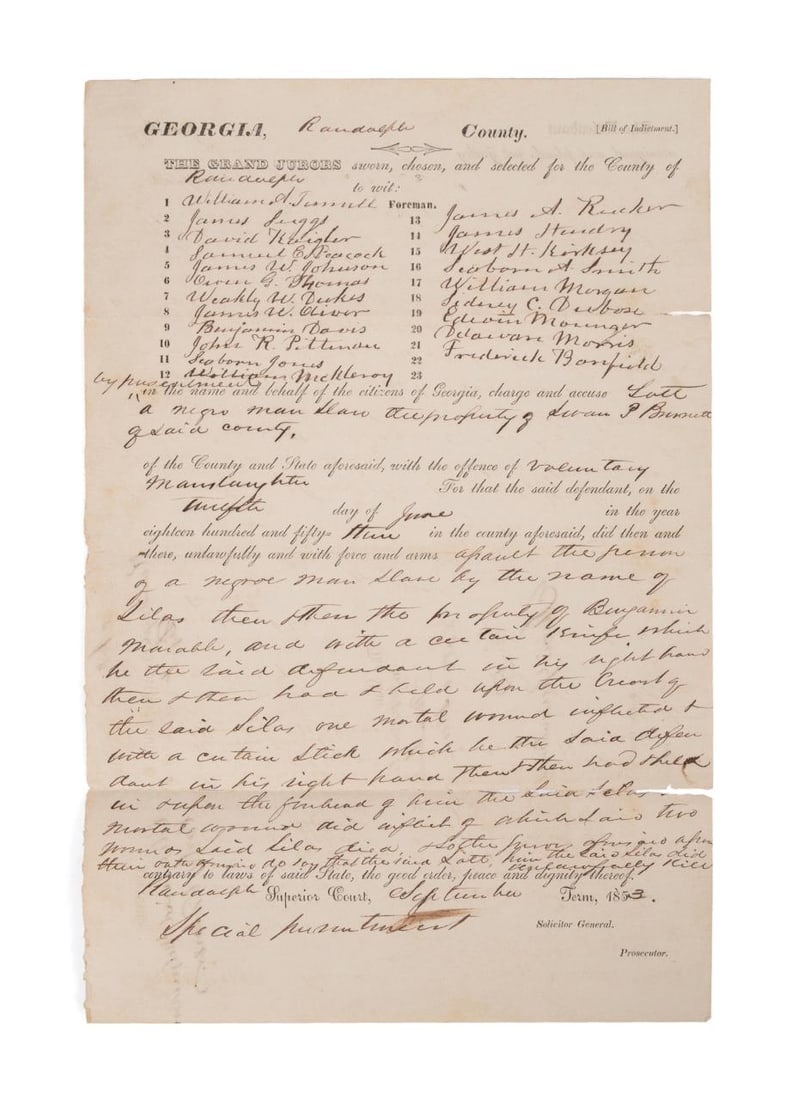 GEORGIA, Randolph County. [Bill of Indictment.]
THE GRAND JURORS sworn, chosen, and selected for the County of
Randolph to wit:
1 William A. Foreman.
2 James Suggs
3 David Kaigler
4 Samuel E. Peacock
5 James W. Johnson
6 Owen G. Thomas
7 Weakly W. Dukes
8 James W. Oliver
9 Benjamin Davis
10 John R. Pittman
11 Seaborn Jones
12 William McElroy
13 James A. Rucker
14 James Hendry
15 West H. Kirksey
16 Seaborn A Smith
17 William Morgan
18 Sidney C. Dubose
19 Edwin
20 Morris
21 Frederick Banfield
22
23
by presentment
in the name and behalf of the citizens of Georgia, charge and accuse Lott
a negro man slave the property of Swan P Burnett
of said county,
of the County and State aforesaid, with the offence of voluntary
Manslaughter For that the said defendant, on the
twelfth day of June in the year
eighteen hundred and fifty- three in the county aforesaid, did then and
there, unlawfully and with force and arms assault the person
of a negroe man slave by the name of
Silas then & then the property of Benjamin
Marable, and with a certain Knife which
he the said defendant in his right hand
then & then had & held upon the breast of
the said Silas one mortal wound inflicted &
with a certain stick which he the said defen
dant in his right hand then & then had & held
in & upon the forehead of him the said Silas
mortal wound did inflict of which said two
wounds said Silas died, & so the Jurors aforesaid upon
their oath aforesaid do say that the said Lott, him the said Silas did
kill
contrary to laws of said State, the good order, peace and dignity thereof.
Randolph Superior Court, September Term, 1853.
Special presentment Solicitor General.
Prosecutor.